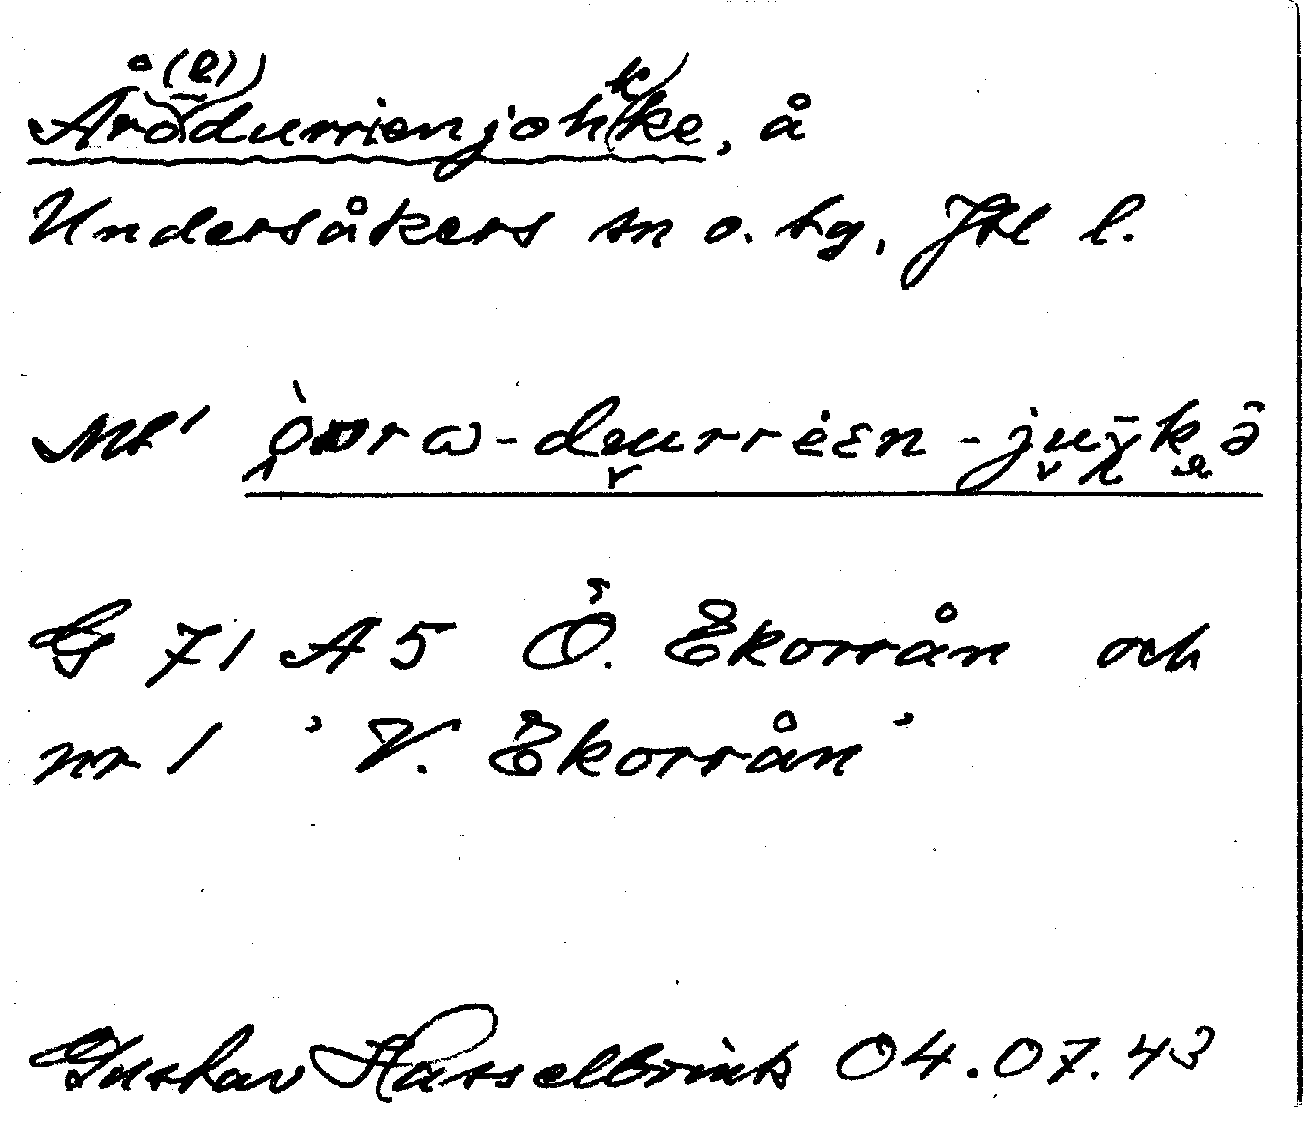 Årådurrienjohke, å
Undersåkers sn o. tg, Jtl l.
G 71 A5 Ö. Ekorrån och
nr 1 ' V. Ekorrån '
Gustav Hasselbrink 04.07.43